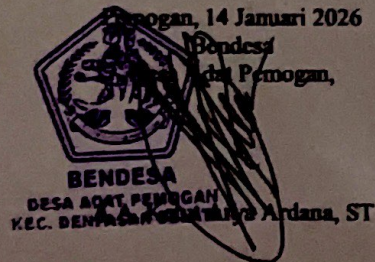 Pemogan, 14 Januari 2026
Bendesa
Desa Adat Pemogan,
BENDESA
DESA ADAT PEMOGAN
KEC. DENPASAR
Ardana, ST